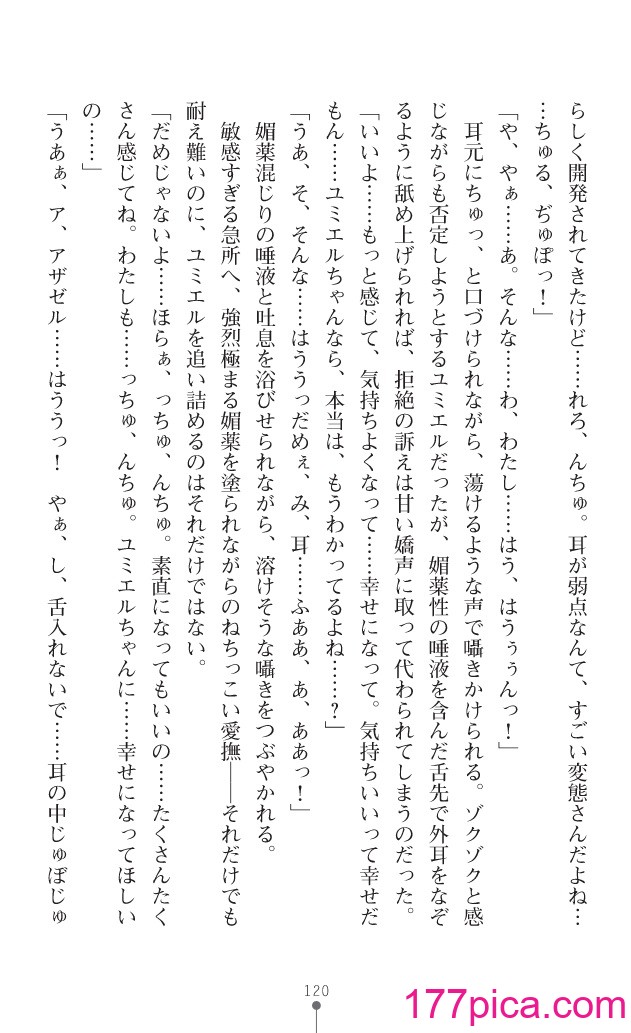 らしく開発されてきたけど……れろ、んちゅ。耳が弱点なんて、すごい変態さんだよね…
…ちゅる、ぢゅぽっ！」
「や、やぁ……あ。そんな……わ、わたし……はう、はうぅぅんっ！」
耳元にちゅっ、と口づけられながら、蕩けるような声で囁きかけられる。ゾクゾクと感
じながらも否定しようとするユミエルだったが、媚薬性の唾液を含んだ舌先で外耳をなぞ
るように舐め上げられれば、拒絶の訴えは甘い嬌声に取って代わられてしまうのだった。
「いいよ……もっと感じて、気持ちよくなって……幸せになって。気持ちいいって幸せだ
もん……ユミエルちゃんなら、本当は、もうわかってるよね……？」
「うあ、そ、そんな……はううっだめぇ、み、耳……ふああ、あ、ああっ！」
媚薬混じりの唾液と吐息を浴びせられながら、溶けそうな囁きをつぶやかれる。
敏感すぎる急所へ、強烈極まる媚薬を塗られながらのねちっこい愛撫――それだけでも
耐え難いのに、ユミエルを追い詰めるのはそれだけではない。
「だめじゃないよ……ほらぁ、っちゅ、んちゅ。素直になってもいいの……たくさんたく
さん感じてね。わたしも……っちゅ、んちゅ。ユミエルちゃんに……幸せになってほしい
の……」
「うあぁ、ア、アザゼル……はううっ！　やぁ、し、舌入れないで……耳の中じゅぽじゅ
120
177pica.com